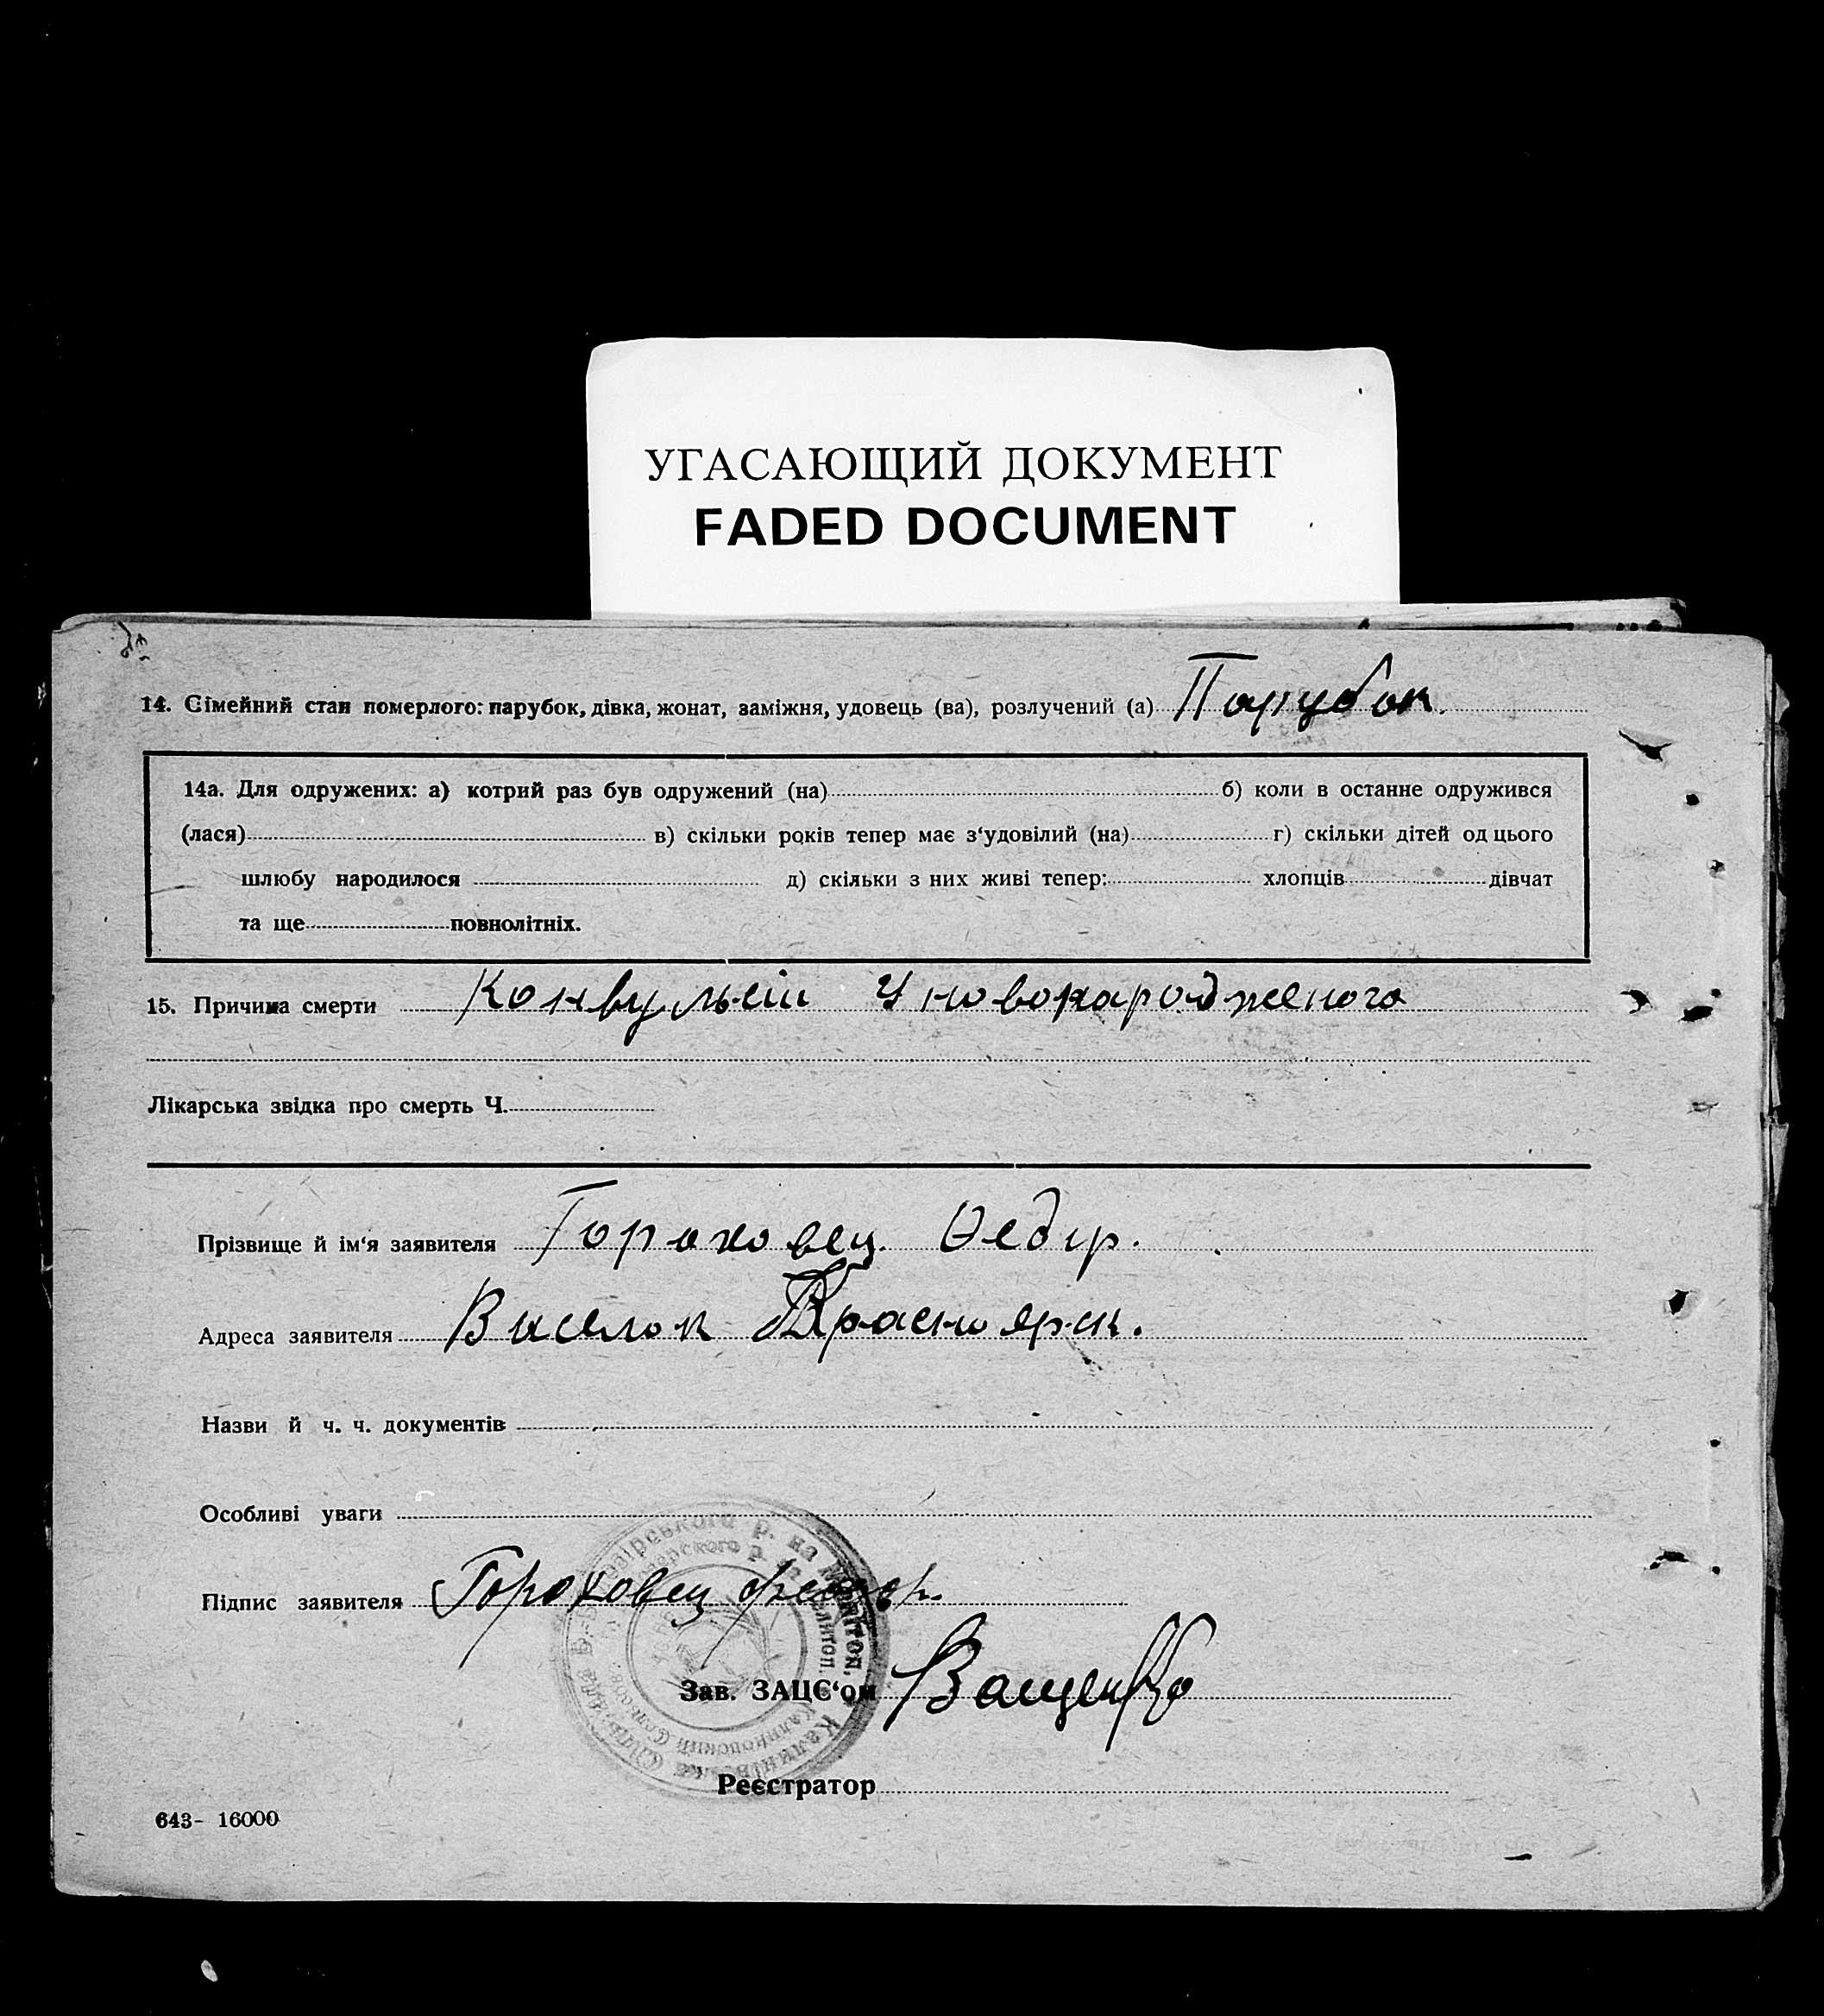 УГАСАЮЩИЙ ДОКУМЕНТ
FADED DOCUMENT
14. Сімейний стан померлого: парубок, дівка, жонат, заміжня, удовець (ва), розлучений (а) Парубок.
14а. Для одружених: а) котрий раз був одружений (на) б) коли в останне одружився
(лася) в) скільки років тепер має з‘удовілий (на) г) скільки дітей од цього
шлюбу народилося д) скільки з них живі тепер: хлопців дівчат
та ще повнолітніх.
15. Причина смерти Конвульсіи У новонародженого
Лікарська звідка про смерть Ч.
Прізвище й ім‘я заявителя Гороховец Федір.
Адреса заявителя Виселок Красноярск.
Назви й ч. ч. документів
Особливі уваги
Підпис заявителя Гороховец
Зав. ЗАЦС‘ом Ващенко
Реєстратор
643- 16000